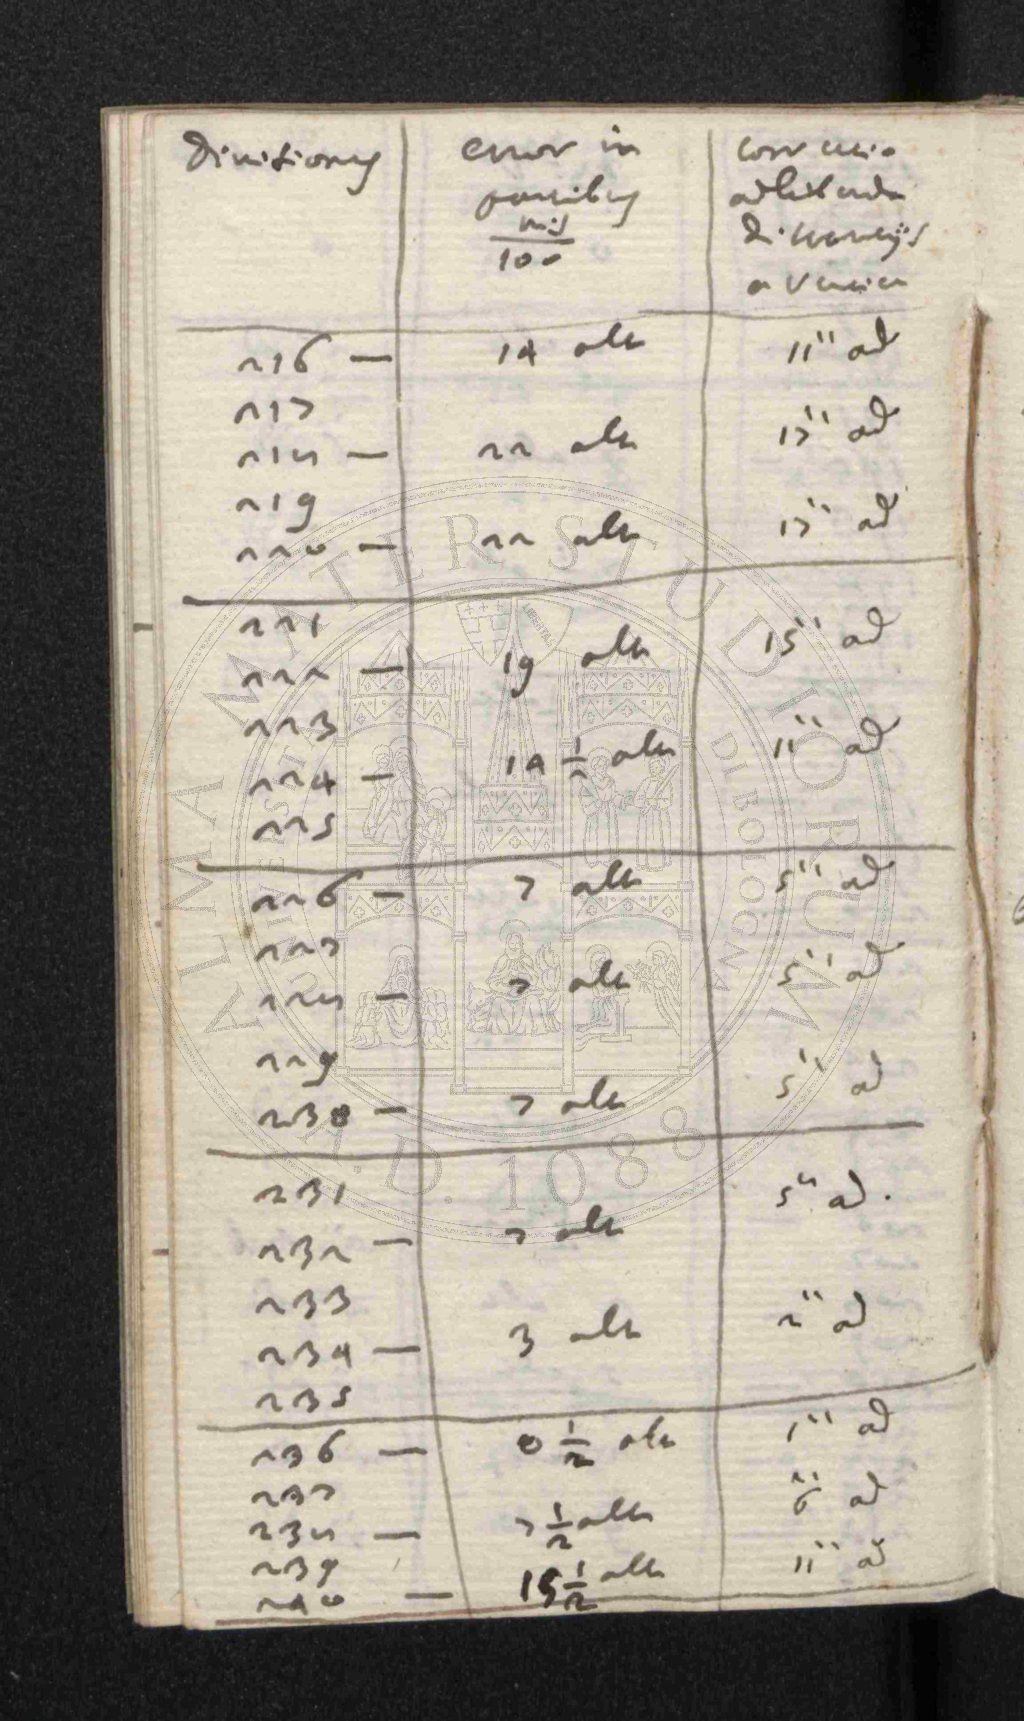 divisiones | error in | correctio
partibus | adhibenda
mis/100 | distantijs
a vertice
216 — | 14 alt | 11'' ad
217
218 — | 22 alt | 17'' ad
219
220 — | 22 alt | 17'' ad
221
222 — | 19 alt | 15'' ad
223
224 — | 14 1/2 alt | 11'' ad
225
226 — | 7 alt | 5'' ad
227
228 — | 7 alt | 5'' ad
229
230 — | 7 alt | 5'' ad
231
232 — | 7 alt | 5'' ad.
233
234 — | 3 alt | 2'' ad
235
236 — | 0 1/2 alt | 1'' ad
237
238 — | 7 1/2 alt | 6'' ad
239
240 — | 15 1/2 alt | 11'' ad
ALMA MATER STUDIORUM
A.D. 1088
UNIVERSITÀ DI BOLOGNA